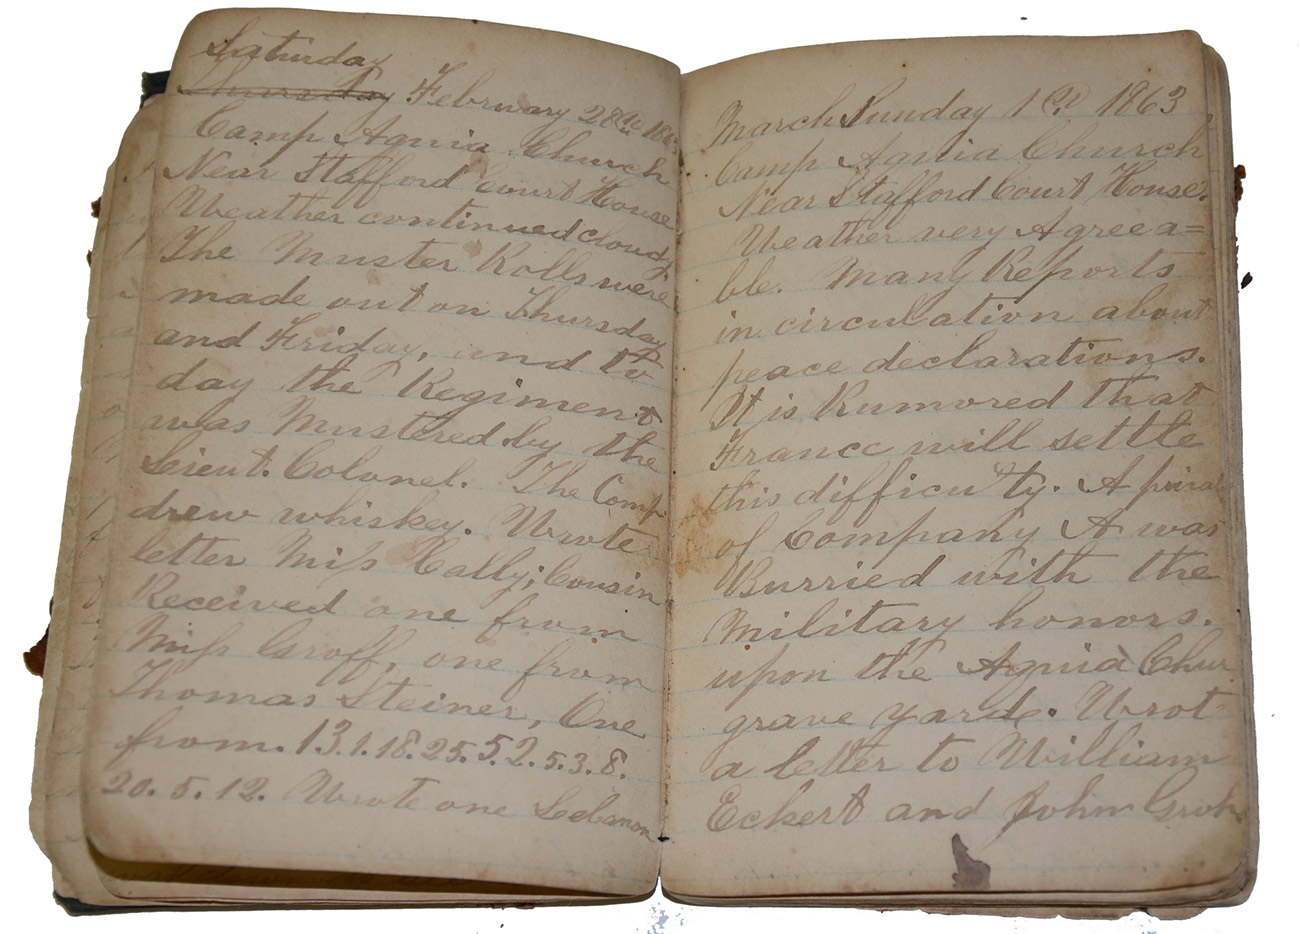 Saturday
Thursday February 28th 1863
Camp Aquia Church
Near Stafford Court House
Weather continued cloudy
The Muster Rolls were
made out on Thursday
and Friday, and to
day the Regiment
was Mustered by the
Lieut. Colonel. The Comp
drew whiskey. Wrote
letter Miss Cally; Cousin
Received one from
Miss Groff, one from
Thomas Steiner, One
from. 13.1.18.25.5.2.5.3.8.
20.5.12. Wrote one Lebanon
March Sunday 1st 1863
Camp Aquia Church
Near Stafford Court House.
Weather very Agreea=
ble. Many Reports
in circulation about
peace declarations.
It is Rumored that
France will settle
this difficulty. A priva
of Company A was
Burried with the
Military honors.
upon the Aquia Chur
grave yard. Wrot
a letter to William
Eckert and John Groh